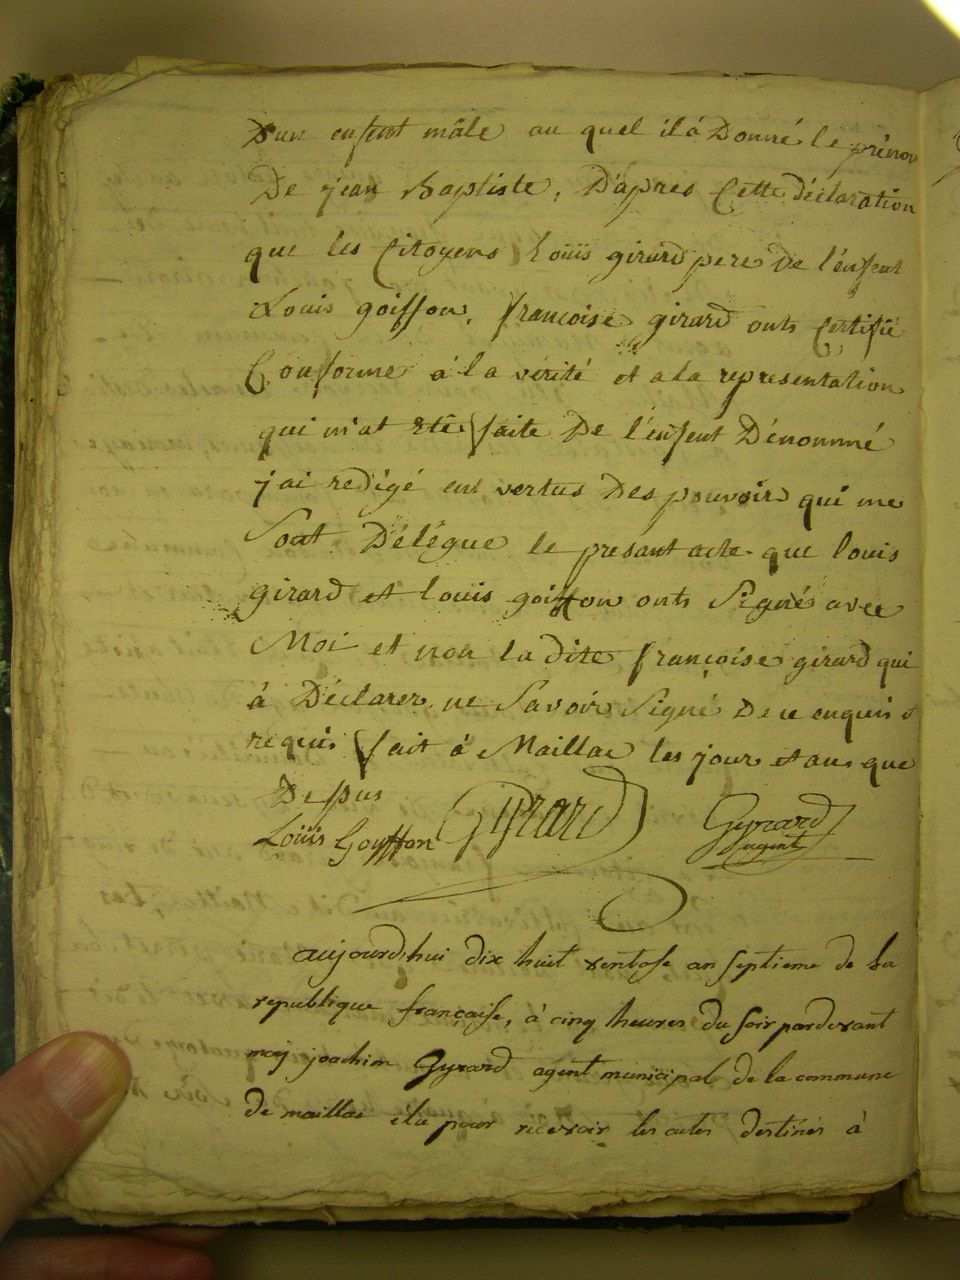 D'un enfent mâle au quel il á Donné le prénon
De jean Baptiste, D'apres Cette déclaration
que les Citoyens Loüis girard pere De l'énfent
Louis goiffon, françoise girard onts Certifié
Conforme á la vérité et a la representation
qui m'at Eté faite De l'énfent Dénommé
j'ai redigé ent vertus Des pouvoir qui me
Sont Délégue le presant acte que louis
girard et louis goiffon onts Signé avec
Moi et non la dite françoise girard qui
à Déclarer ne Savoir Signé De ce enquis &
requis fait á Maillac les jour et an que
De pus
Loüis Goyffon Girard Gyrard
agent
aujourdhui dix huit ventose an septieme de la
republique française, à cinq heures du soir pardevant
moy joachim Gyrard agent municipal de la commune
de maillac élu pour recevoir les actes destinés à